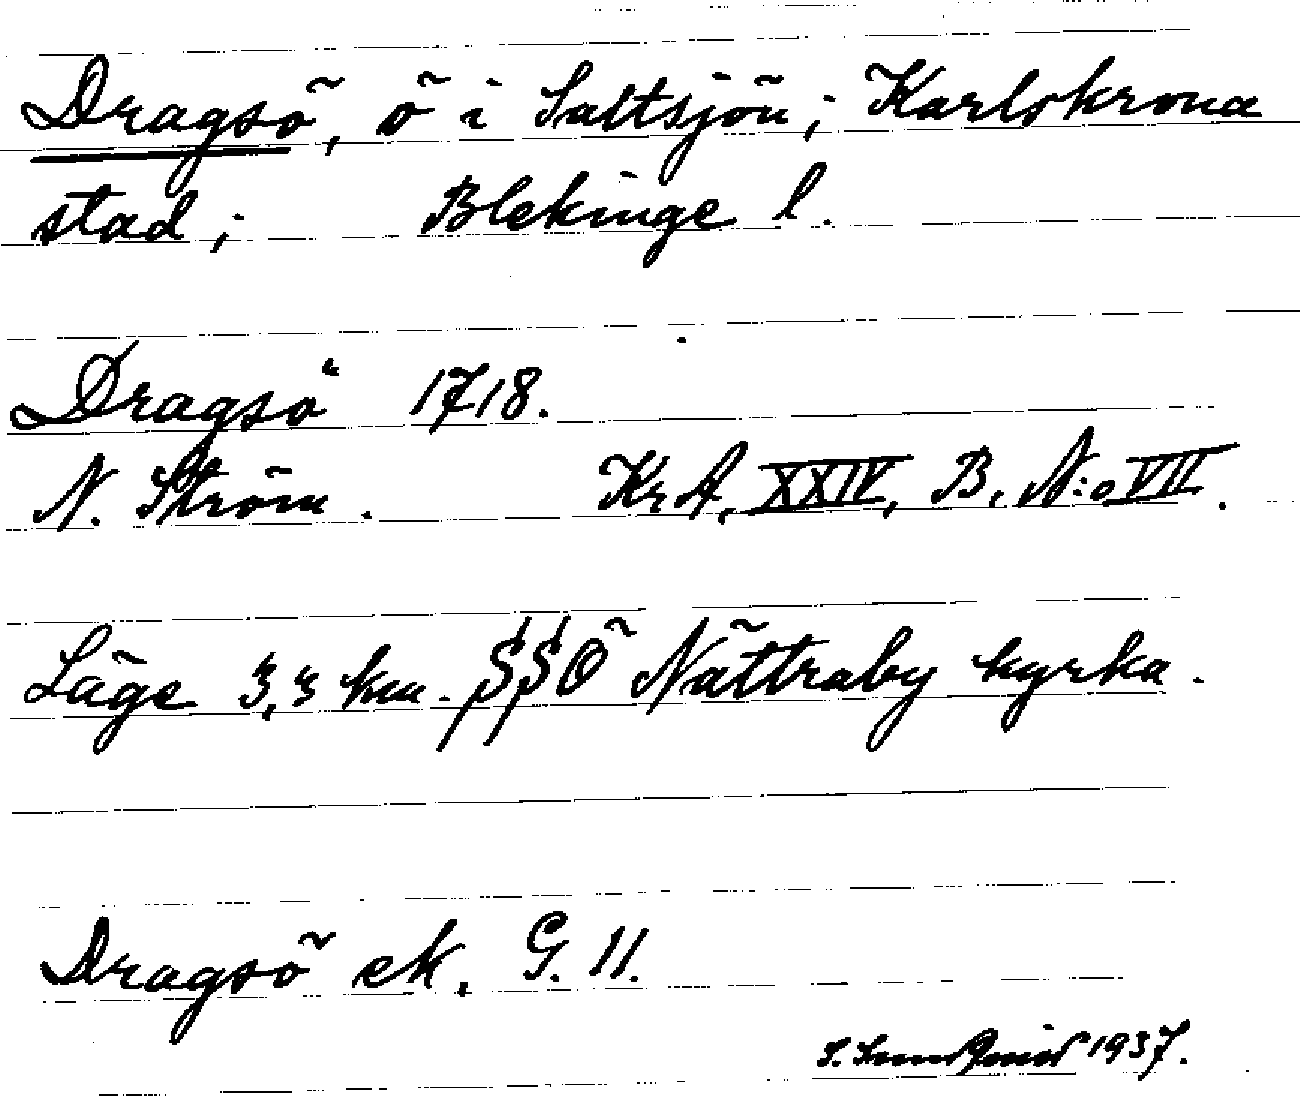 Dragsö, ö i Saltsjön; Karlskrona
stad; Blekinge l.
Dragsö 1718.
N. Ström. KrA, XXIV, B, N:o VII.
Läge 3,3 km. SSÖ Nättraby kyrka.
Dragsö ek. G. 11.
1937.